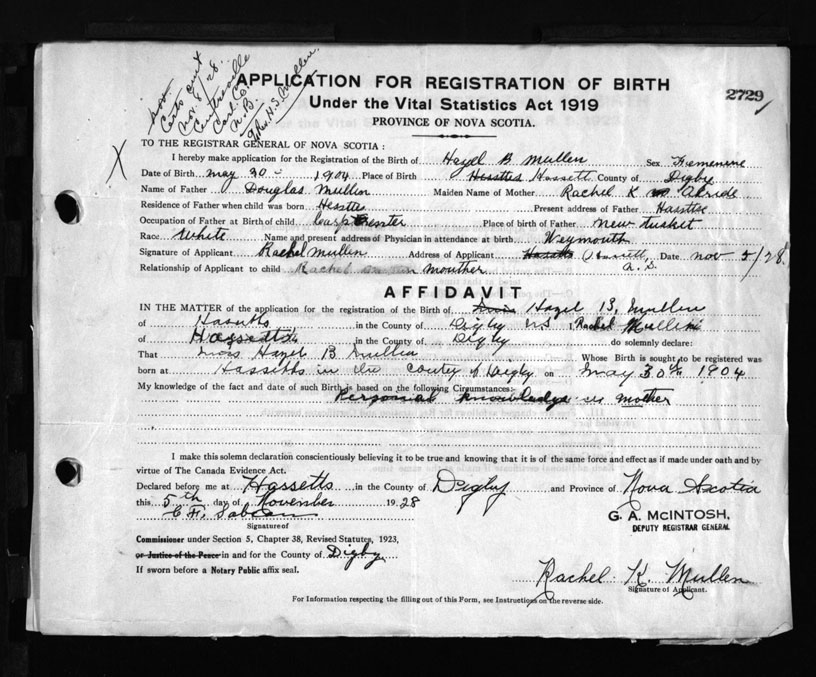 Cert sent
Nov. 8/28.
Centreville
Carl. Co.
N.B.
APPLICATION FOR REGISTRATION OF BIRTH
2729
Under the Vital Statistics Act 1919
PROVINCE OF NOVA SCOTIA.
X
TO THE REGISTRAR GENERAL OF NOVA SCOTIA :
I hereby make application for the Registration of the Birth of Hazel B Mullen Sex Femenine
Date of Birth may 30 1904 Place of Birth Hassett County of Digby
Name of Father Douglas Mullin Maiden Name of Mother Rachel K
Residence of Father when child was born Present address of Father
Occupation of Father at Birth of child Carpenter Place of Birth of Father New tusket
Race White Name and present address of Physician in attendance at birth Weymouth
Signature of Applicant Rachel Mullin Address of Applicant Date nov 5/28.
Relationship of Applicant to child mouther
AFFIDAVIT
IN THE MATTER of the application for the registration of the Birth of Hazel B, Mullen
of in the County of Digby I, Rachel Mullen
of in the County of Digby do solemnly declare:
That Hazel B Mullin Whose Birth is sought to be registered was
born at Hassetts in the of Digby on May 30th 1904
My knowledge of the fact and date of such Birth is based on the following Circumstances:-
Personal knowledge mother
I make this solemn declaration conscientiously believing it to be true and knowing that it is of the same force and effect as if made under oath and by
virtue of The Canada Evidence Act.
Declared before me at Hassetts in the County of Digby and Province of Nova Scotia
this 5th day of November 1928
G. A. McINTOSH,
DEPUTY REGISTRAR GENERAL
Signature of
Commissioner under Section 5, Chapter 38, Revised Statutes, 1923,
or Justice of the Peace in and for the County of Digby
If sworn before a Notary Public affix seal.
Rachel K. Mullen
Signature of Applicant.
For Information respecting the filling out of this Form, see Instructions on the reverse side.